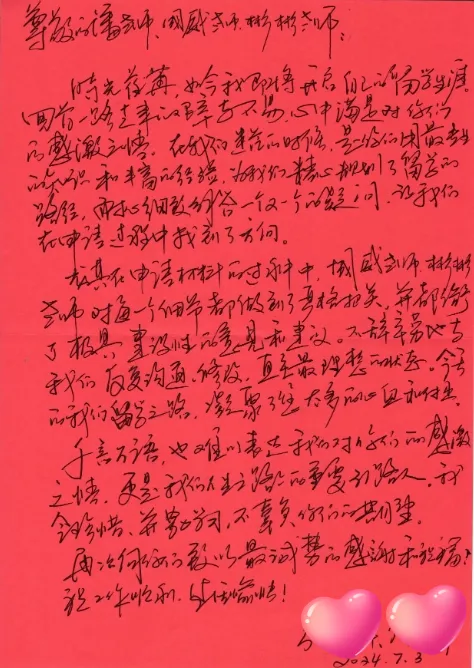 尊敬的潘老师、周威老师、彬彬老师：
时光荏苒，如今我即将开启自己的留学生涯。
回首一路走来的艰辛不易，心中满是对你们
的感激之情。在我们迷茫的时候，是你们用最专业
的知识和丰富的经验，为我们精心规划了留学的
路径，耐心细致解答一个又一个的疑问，让我们
在申请过程中找到了方向。
尤其在申请材料的过程中，周威老师、彬彬
老师对每一个细节都做到了严格把关，并都给
了极具建设性的意见和建议。不辞辛劳地与
我们反复沟通、修改，直至最理想的状态。今天
的我们留学之路，凝聚了您太多的心血和付出。
千言万语，也难以表达我们对你们的感激
之情，更是我们人生之路上的重要引路人，我
会珍惜，并努力学习，不辜负你们的期望。
再次向你们致以最诚挚的感谢和祝福，
祝工作顺利，生活愉快！
2024.7.3